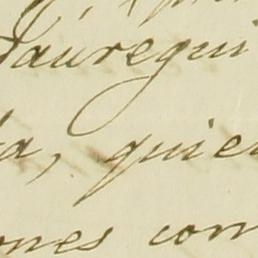 Jáuregui
a, quien
ones com